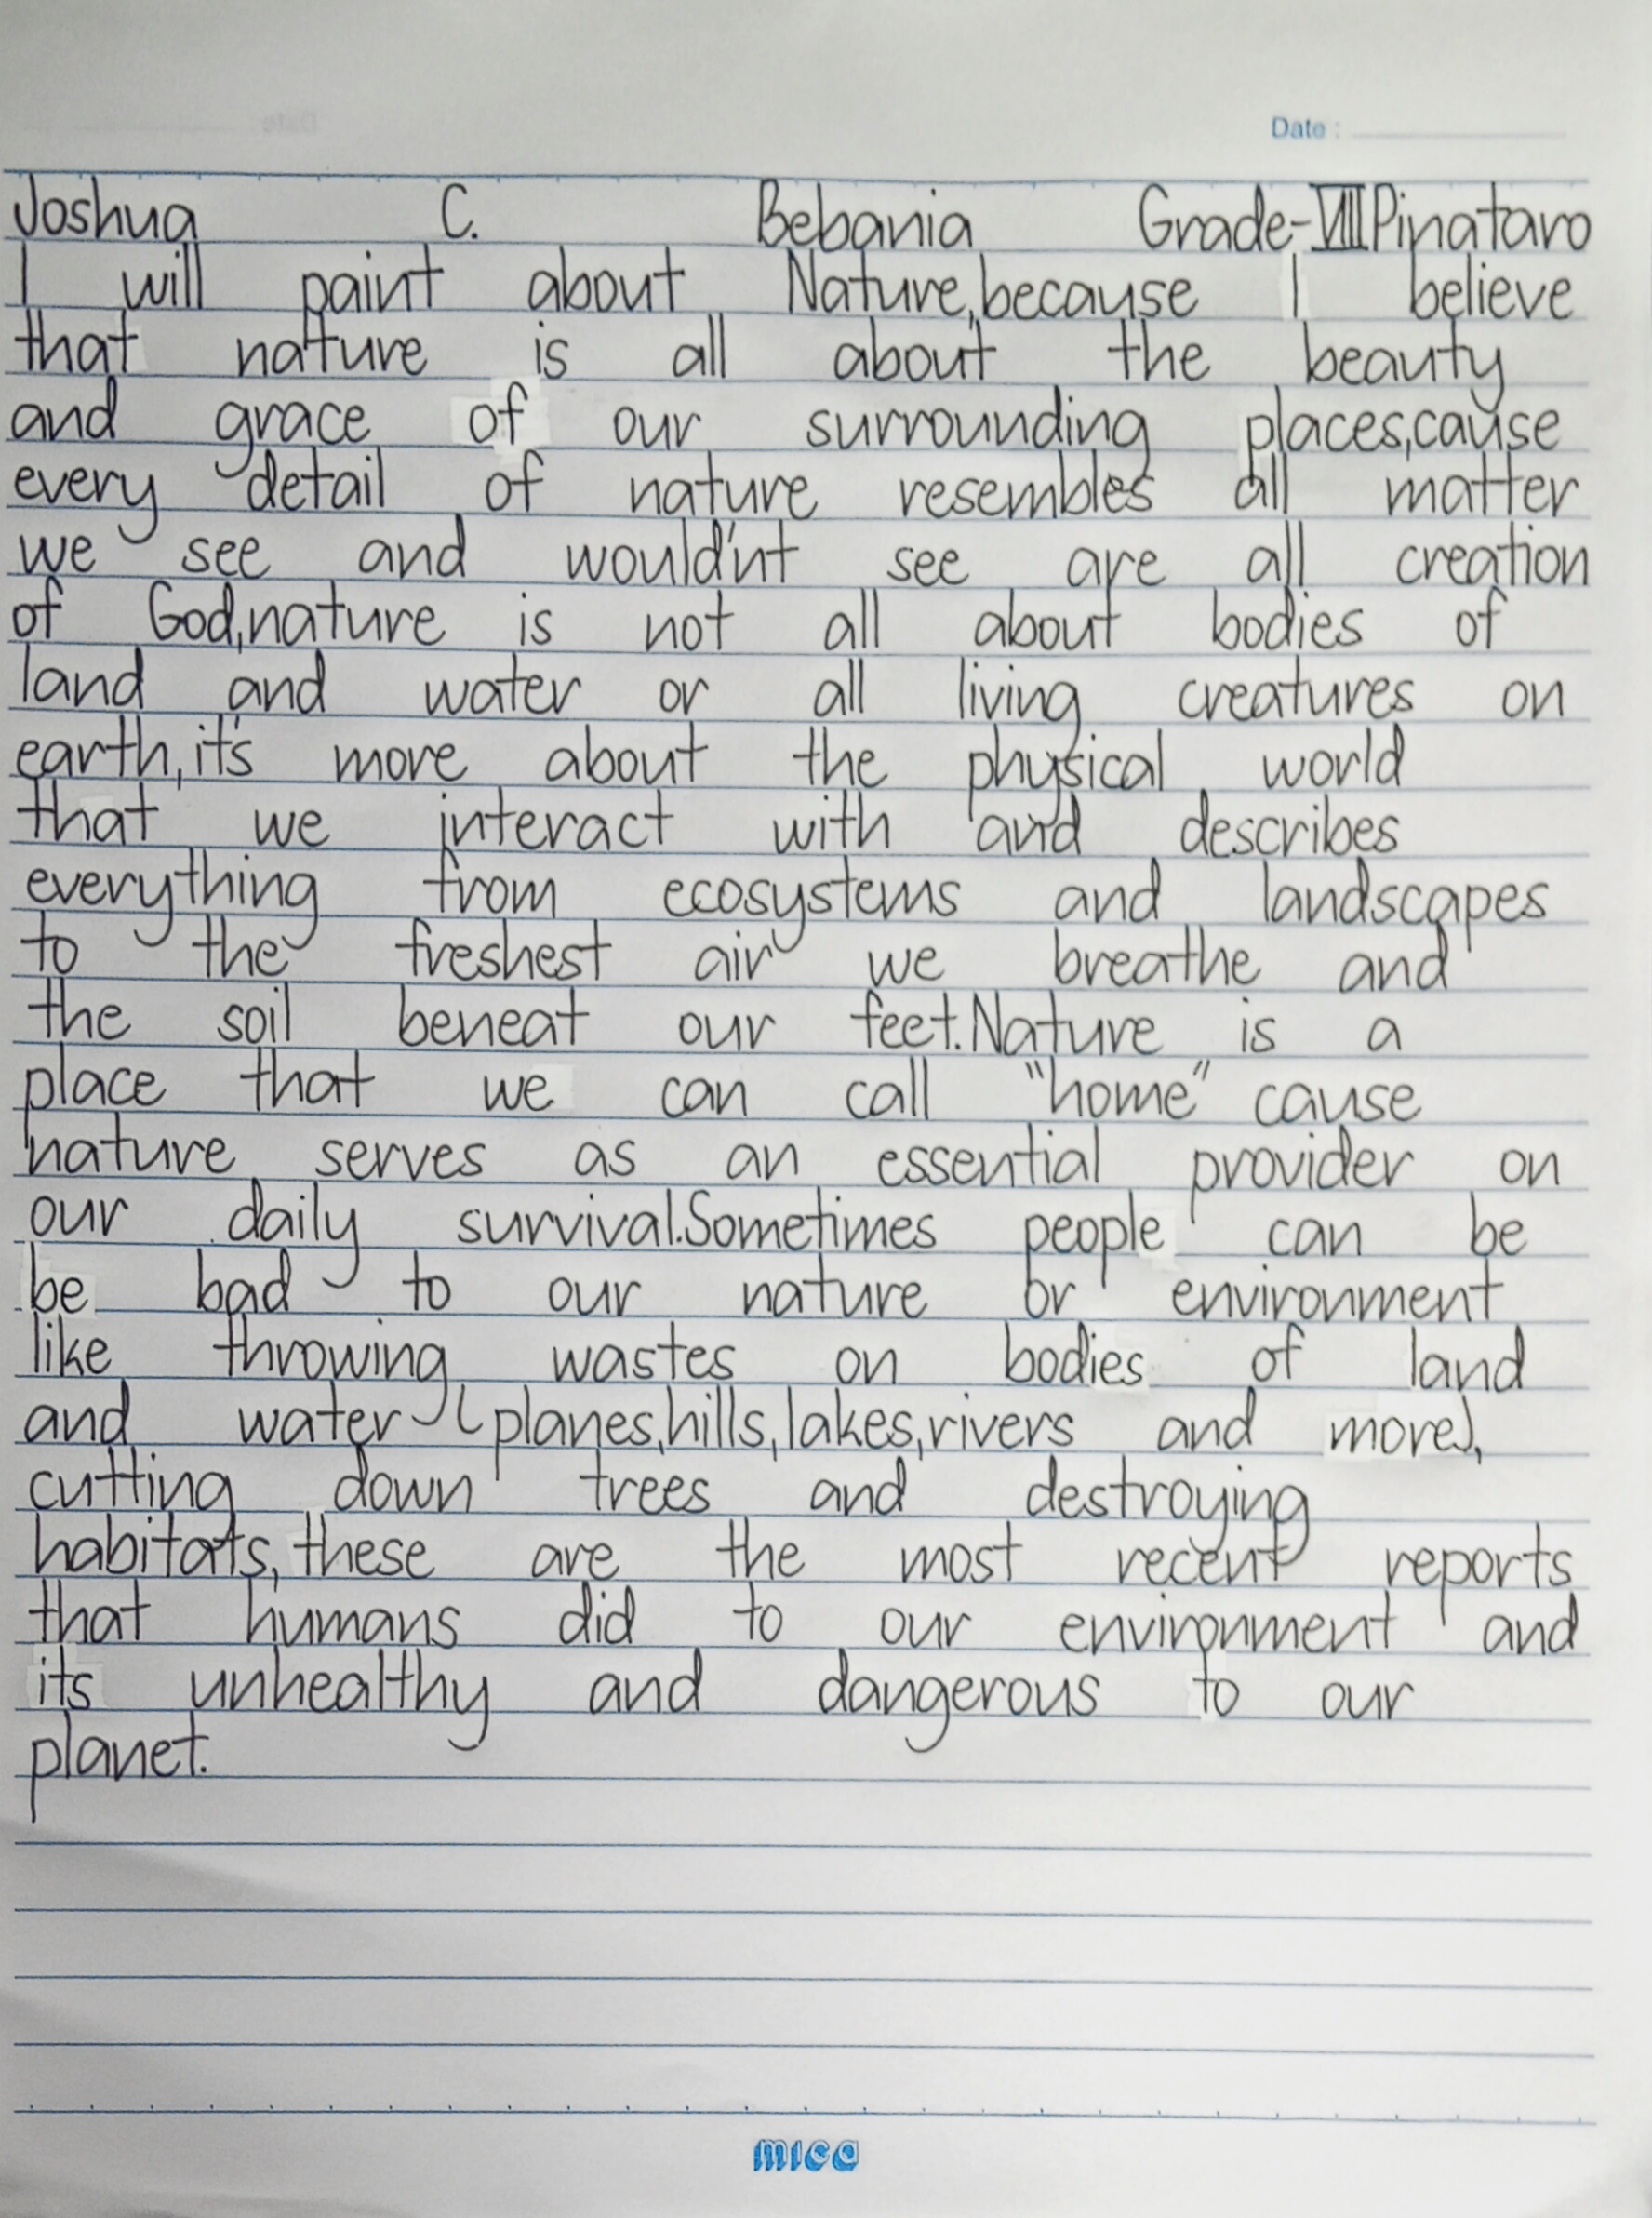 Date :
Joshua C. Bebania Grade-VIII Pinataro
I will paint about Nature,because I believe
that nature is all about the beauty
and grace of our surrounding places,cause
every detail of nature resembles all matter
we see and would'nt see are all creation
of God,nature is not all about bodies of
land and water or all living creatures on
earth,it's more about the physical world
that we interact with and describes
everything from ecosystems and landscapes
to the freshest air we breathe and
the soil beneat our feet.Nature is a
place that we can call "home" cause
nature serves as an essential provider on
our daily survival.Sometimes people can be
be bad to our nature or environment
like throwing wastes on bodies of land
and water (planes,hills,lakes,rivers and more),
cutting down trees and destroying
habitats,these are the most recent reports
that humans did to our environment and
its unhealthy and dangerous to our
planet.
mica